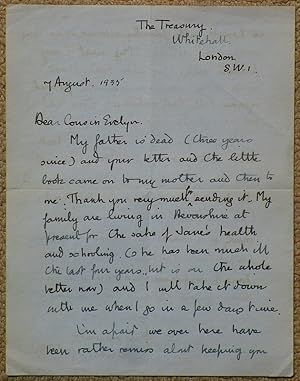 The Treasury,
Whitehall,
London
S.W.1.
7 August. 1935
Dear Cousin Evelyn,
My father is dead (three years
since) and your letter and the little
book came on to my mother and then to
me. Thank you very much for sending it. My
family are living in Devonshire at
present for the sake of Jane's health
and schooling (she has been much ill
the last four years, but is on the whole
better now) and I will take it down
with me when I go in a few days time.
I'm afraid we over here have
been rather remiss about keeping you